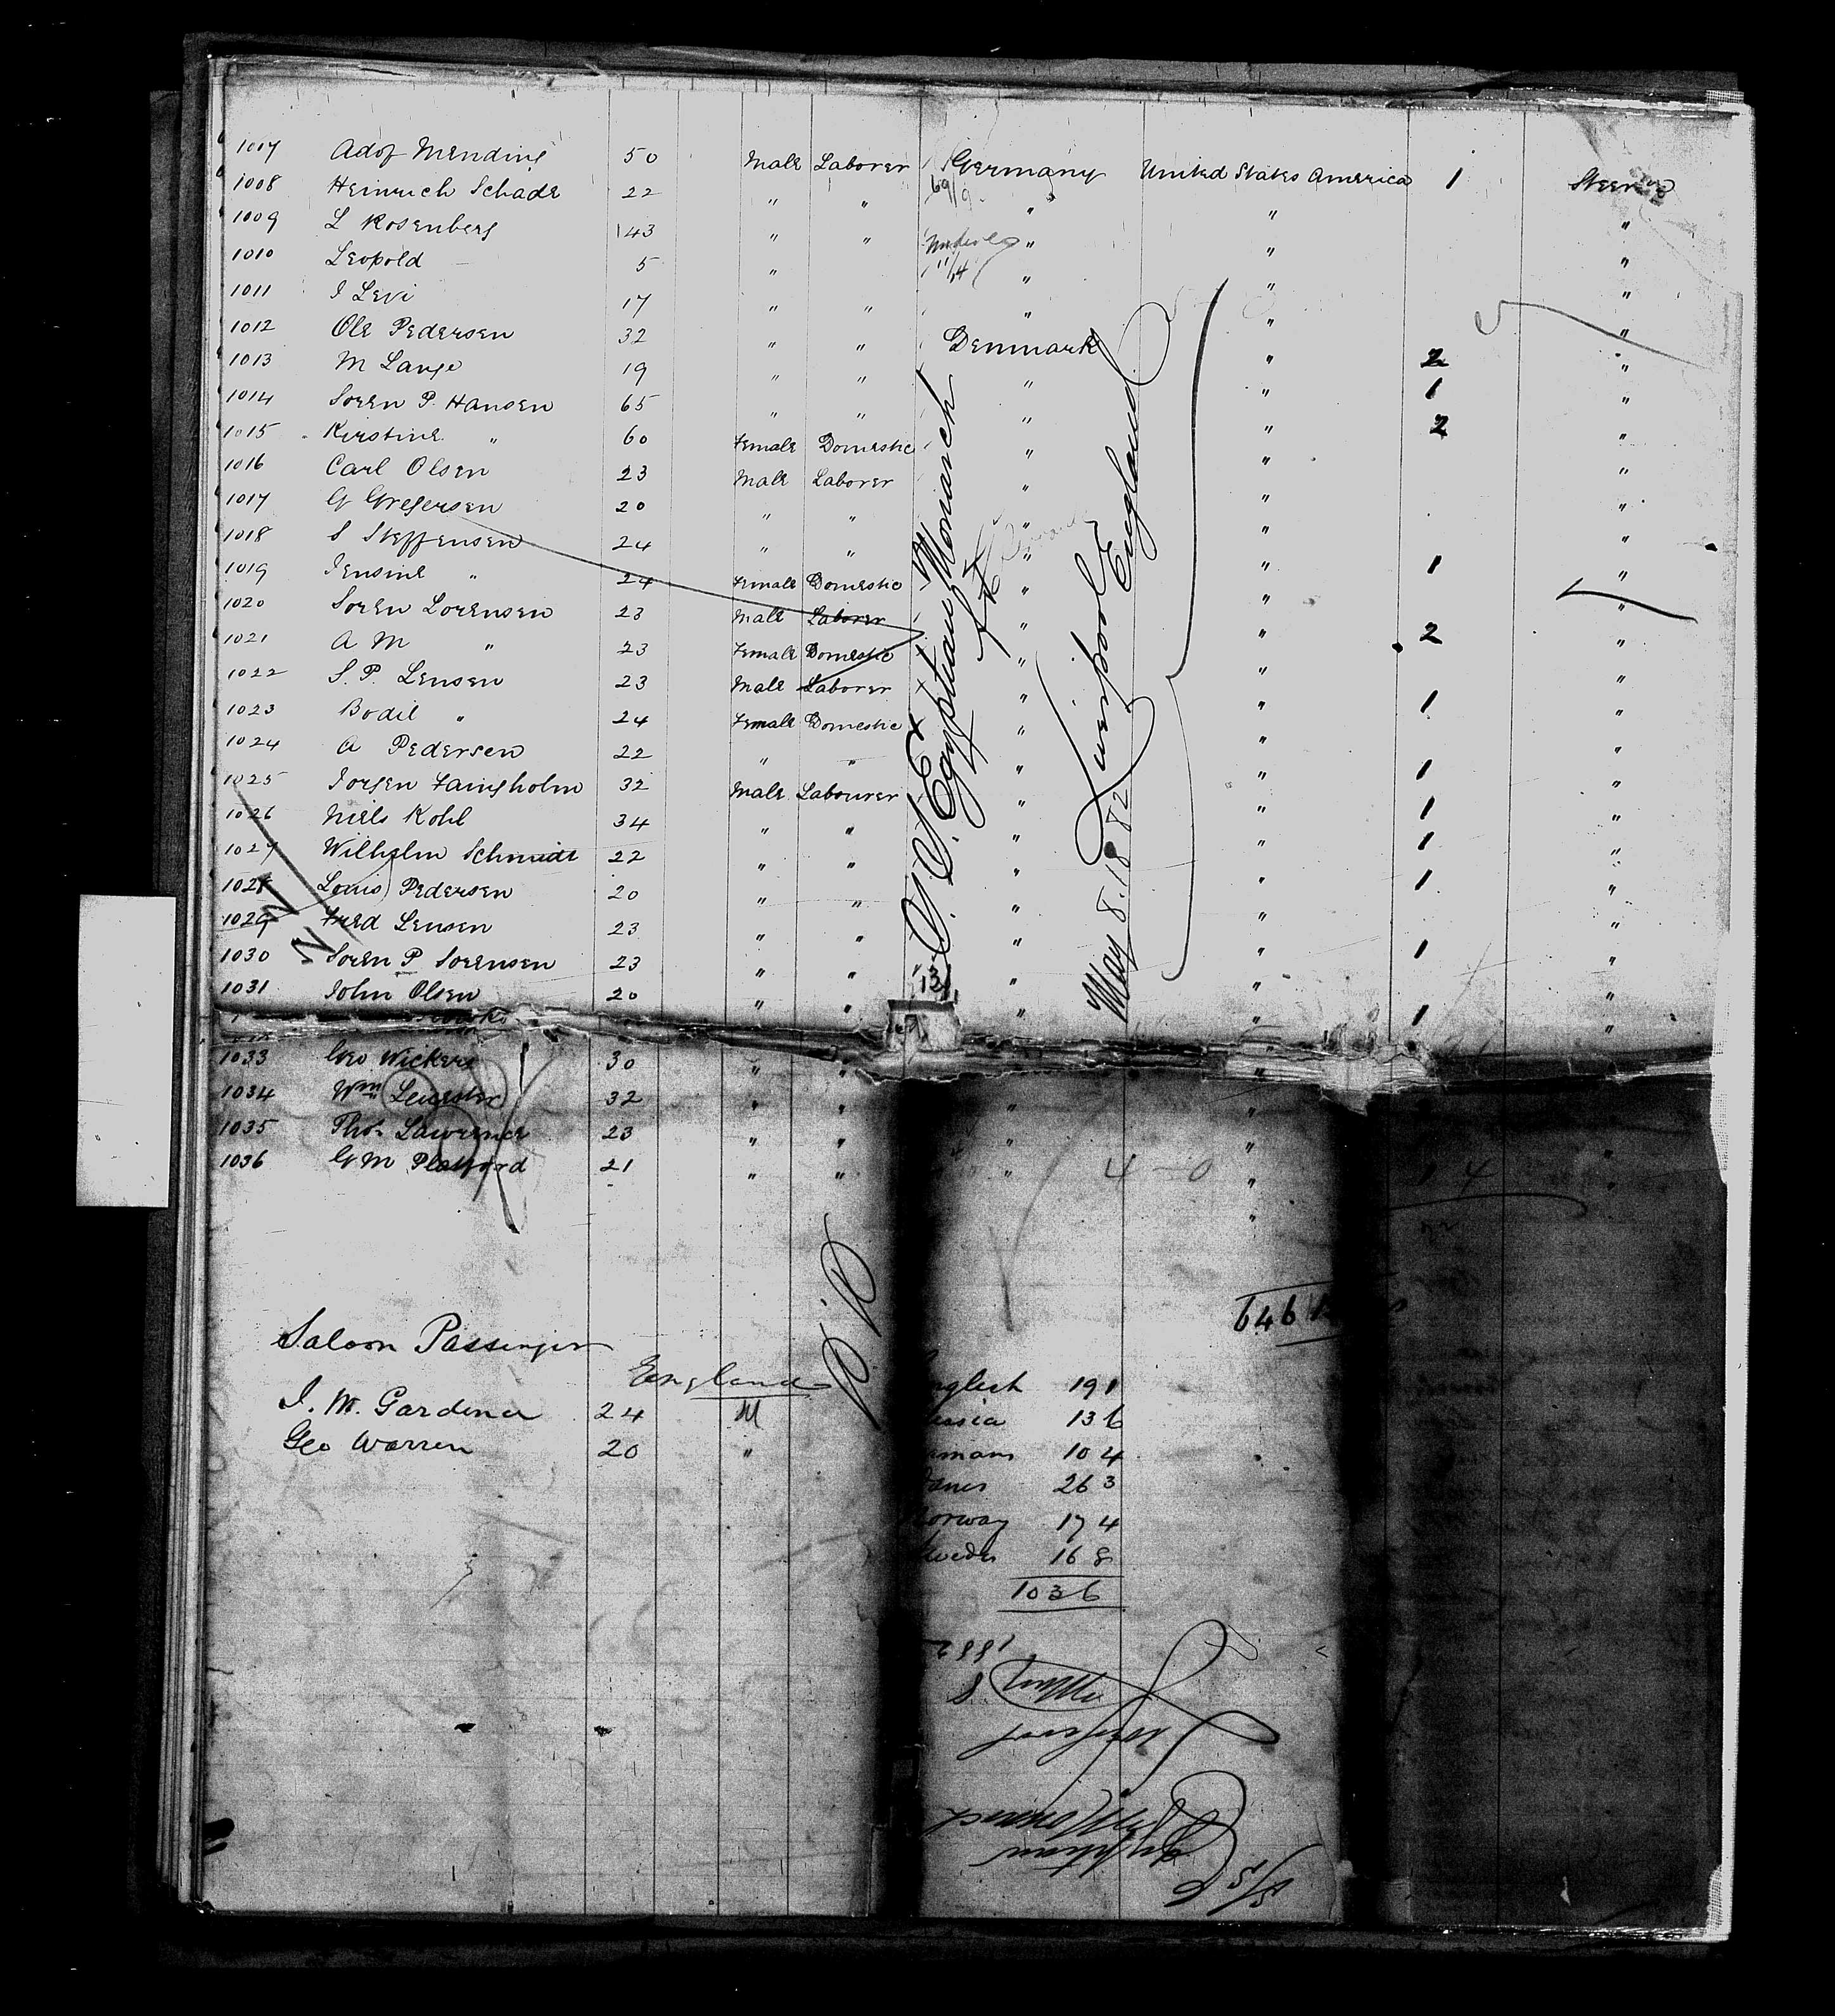 1007 Adof Mending 50 Male Laborer Germany United States America 1 Steerage
1008 Heinrich Schade 22 " " 69/9 " " "
1009 L Rosenberg 43 " " " " "
1010 Leopold 5 " 11/14 " " "
1011 I Levi 17 " " " " "
1012 Ole Pedersen 32 " " Denmark " 2 "
1013 M Lange 19 " " " " 1 "
1014 Soren P. Hansen 65 " " " " 2 "
1015 Kirstine " 60 Female Domestic " " "
1016 Carl Olsen 23 Male Laborer " " "
1017 G Gregersen 20 " " " " "
1018 S Steffensen 24 " " " " 1 "
1019 Jensine " 24 Female Domestic " " "
1020 Soren Lorensen 23 Male Laborer " " 2 "
1021 A M " 23 Female Domestic " " "
1022 S. P. Lensen 23 Male Laborer " " 1 "
1023 Bodil " 24 Female Domestic " " "
1024 A Pedersen 22 " " " " 1 "
1025 Jorgen 32 Male Labourer " " 1 "
1026 Niels Kohl 34 " " " " 1 "
1027 Wilhelm Schmidt 22 " " " " 1 "
1028 Louis Pedersen 20 " " " " "
1029 Fred Lensen 23 " " " " 1 "
1030 Soren P Sorensen 23 " " " " "
1031 John Olsen 20 " " " " 1 "
S. S. Egyptian Monarch
Liverpool England
May 8. 1882
131
NN
1033 Geo Wickers 30 " " "
1034 Wm Leicester 32 " " " "
1035 Thos Lawrence 23 " " " "
1036 G M 21 " " " " 14 "
4 0
646
Saloon Passenger
England
I. M. Gardener 24 M
Geo Warren 20 "
nglish 191
ussia 136
rmans 104
Danes 263
Norway 174
Swedes 168
1036
S/S Egyptian
Monarch
Liverpool
May 8
1882